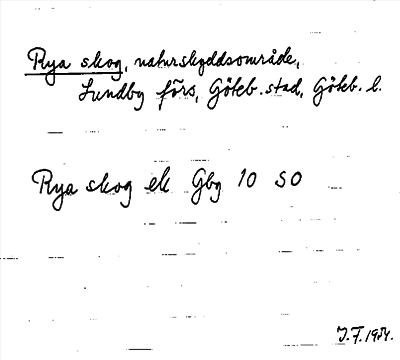 Rya skog, naturskyddsområde,
Lundby förs, Göteb. stad, Göteb. l.
Rya skog ek Gbg 10 SO
J. F. 1954.